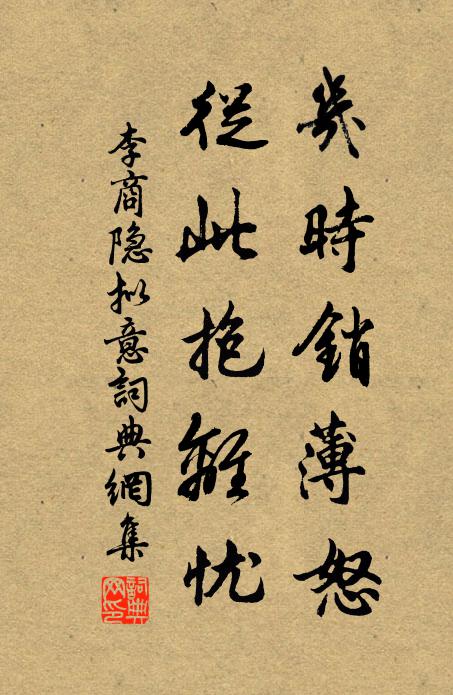 幾時銷薄怒
從此抱離忧
李商隐拟意詞典網集
詞典网印